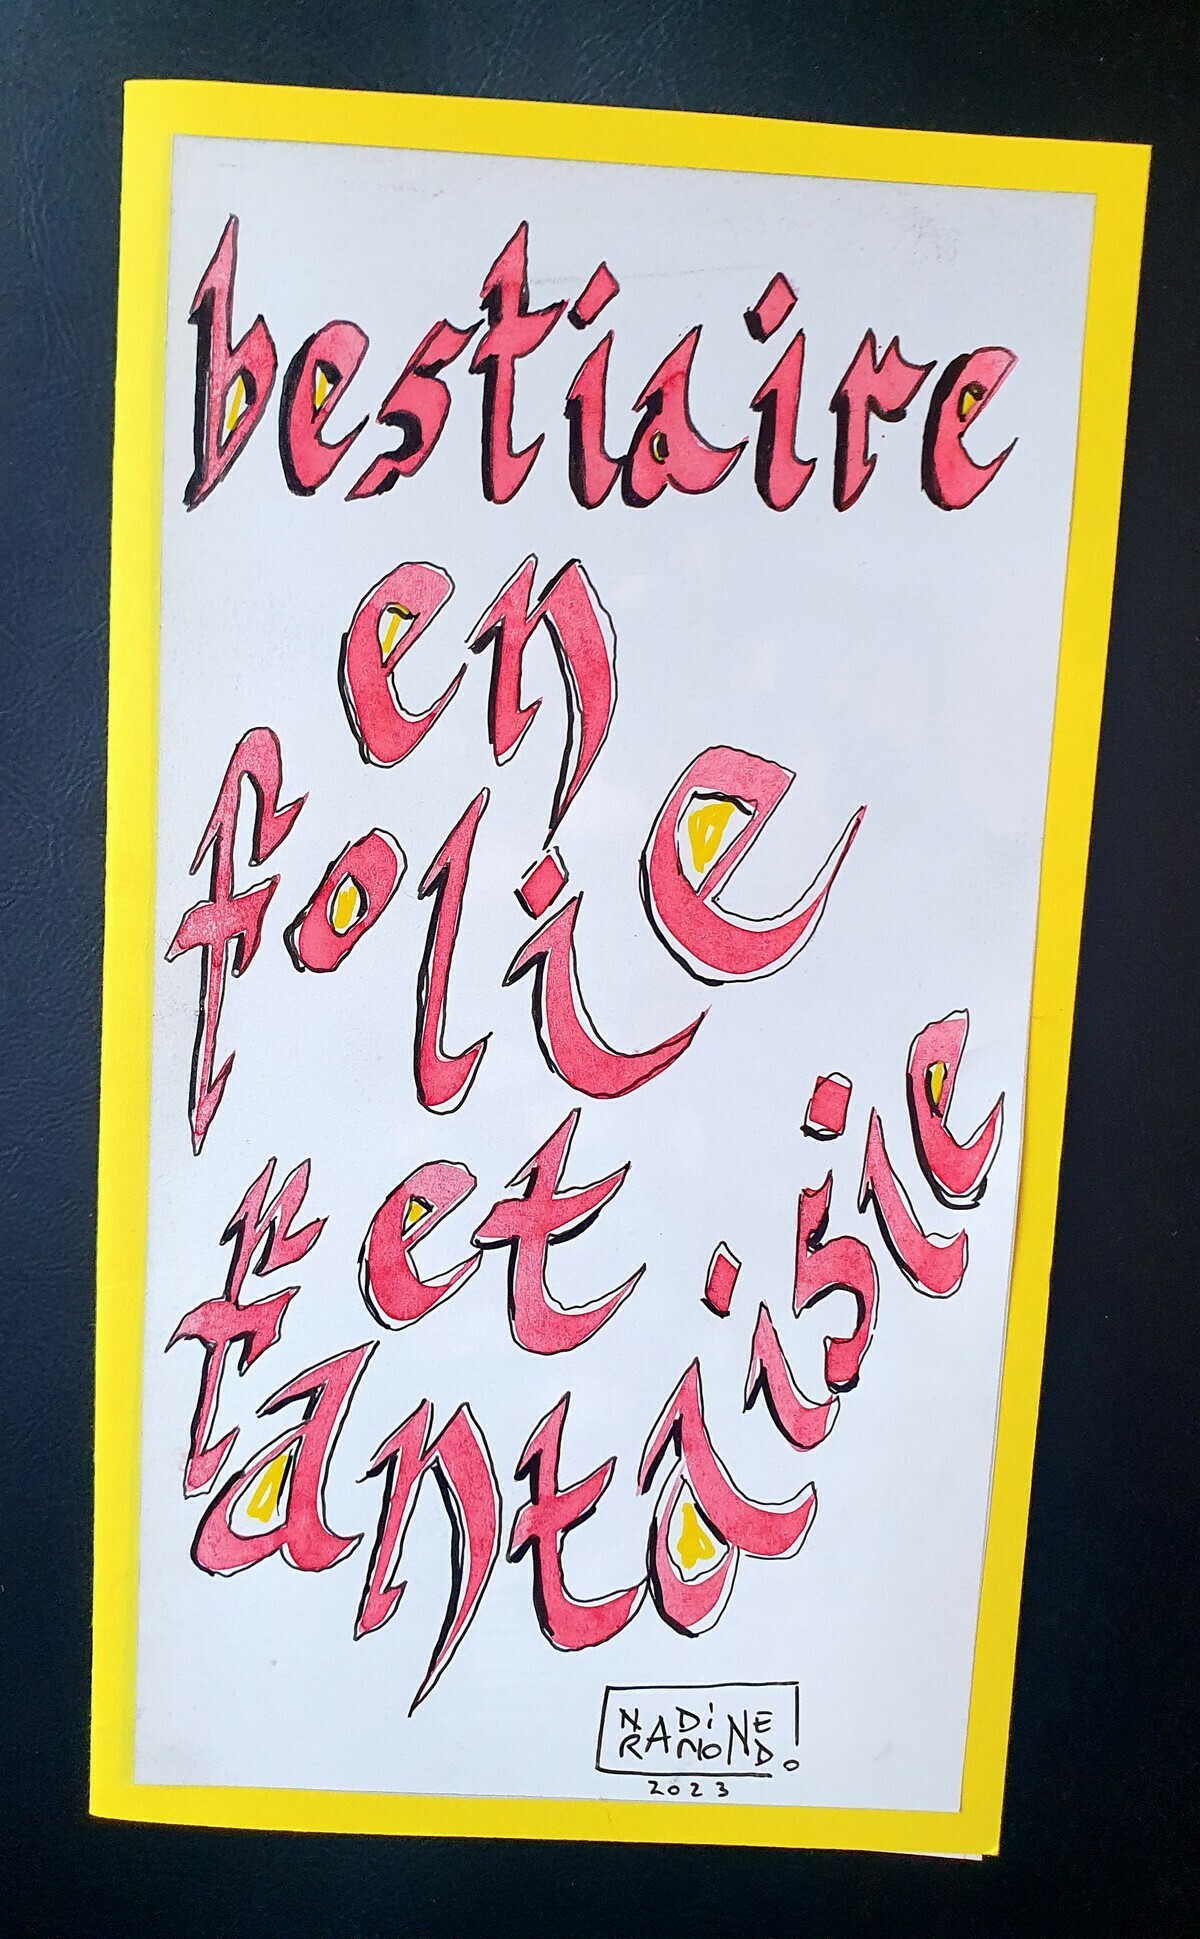 bestiaire
en
folie
et
fantaisie
NADiNE
RAMOND!
2023